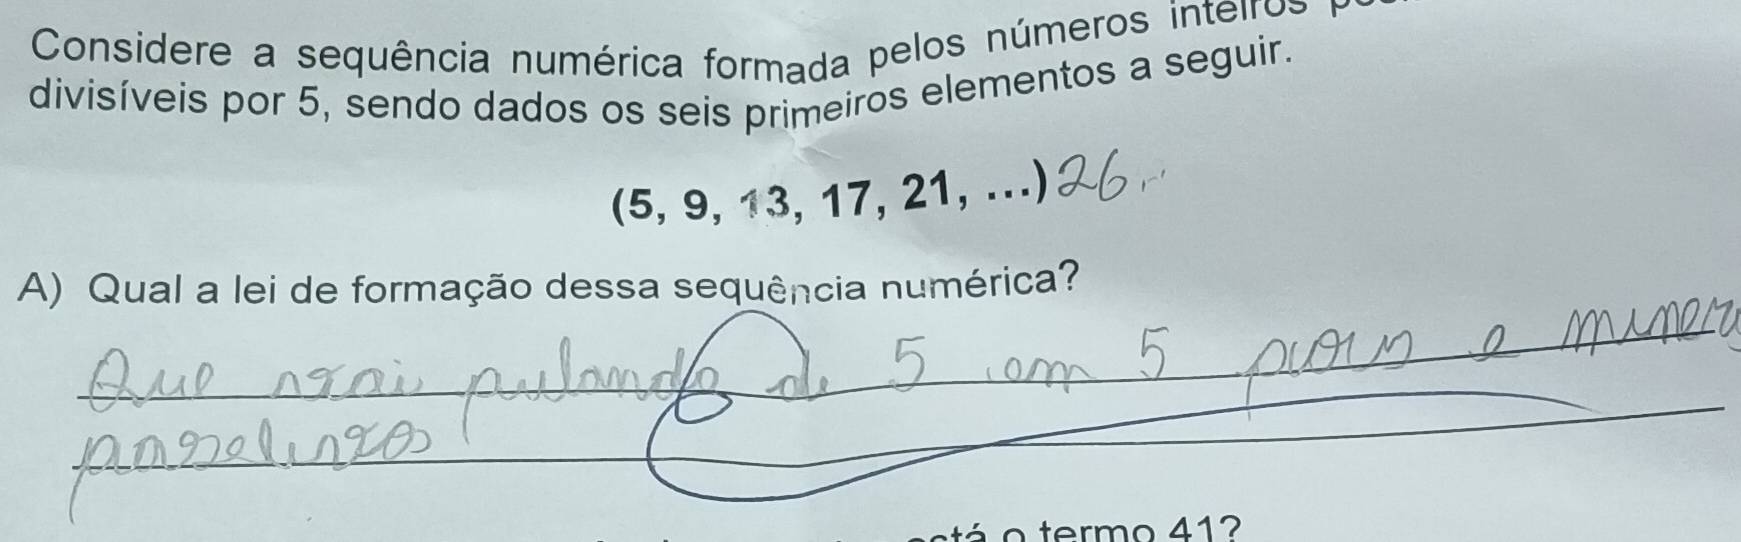 Considere a sequência numérica formada pelos números inteiros
divisíveis por 5, sendo dados os seis primeiros elementos a seguir.
(5, 9, 13, 17, 21, ...) 26
A) Qual a lei de formação dessa sequência numérica?
Que vai pulando de 5 em 5 para o
o termo 41?